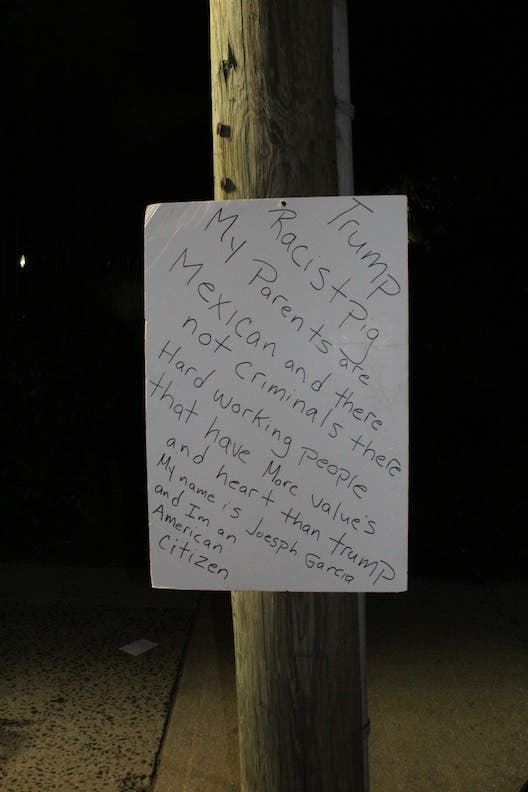 Trump
Racist Pig
My Parents are
Mexican and there
not Criminals there
Hard working people
that have More value's
and heart than trump
My name is Joesph Garcia
and Im an
American
Citizen